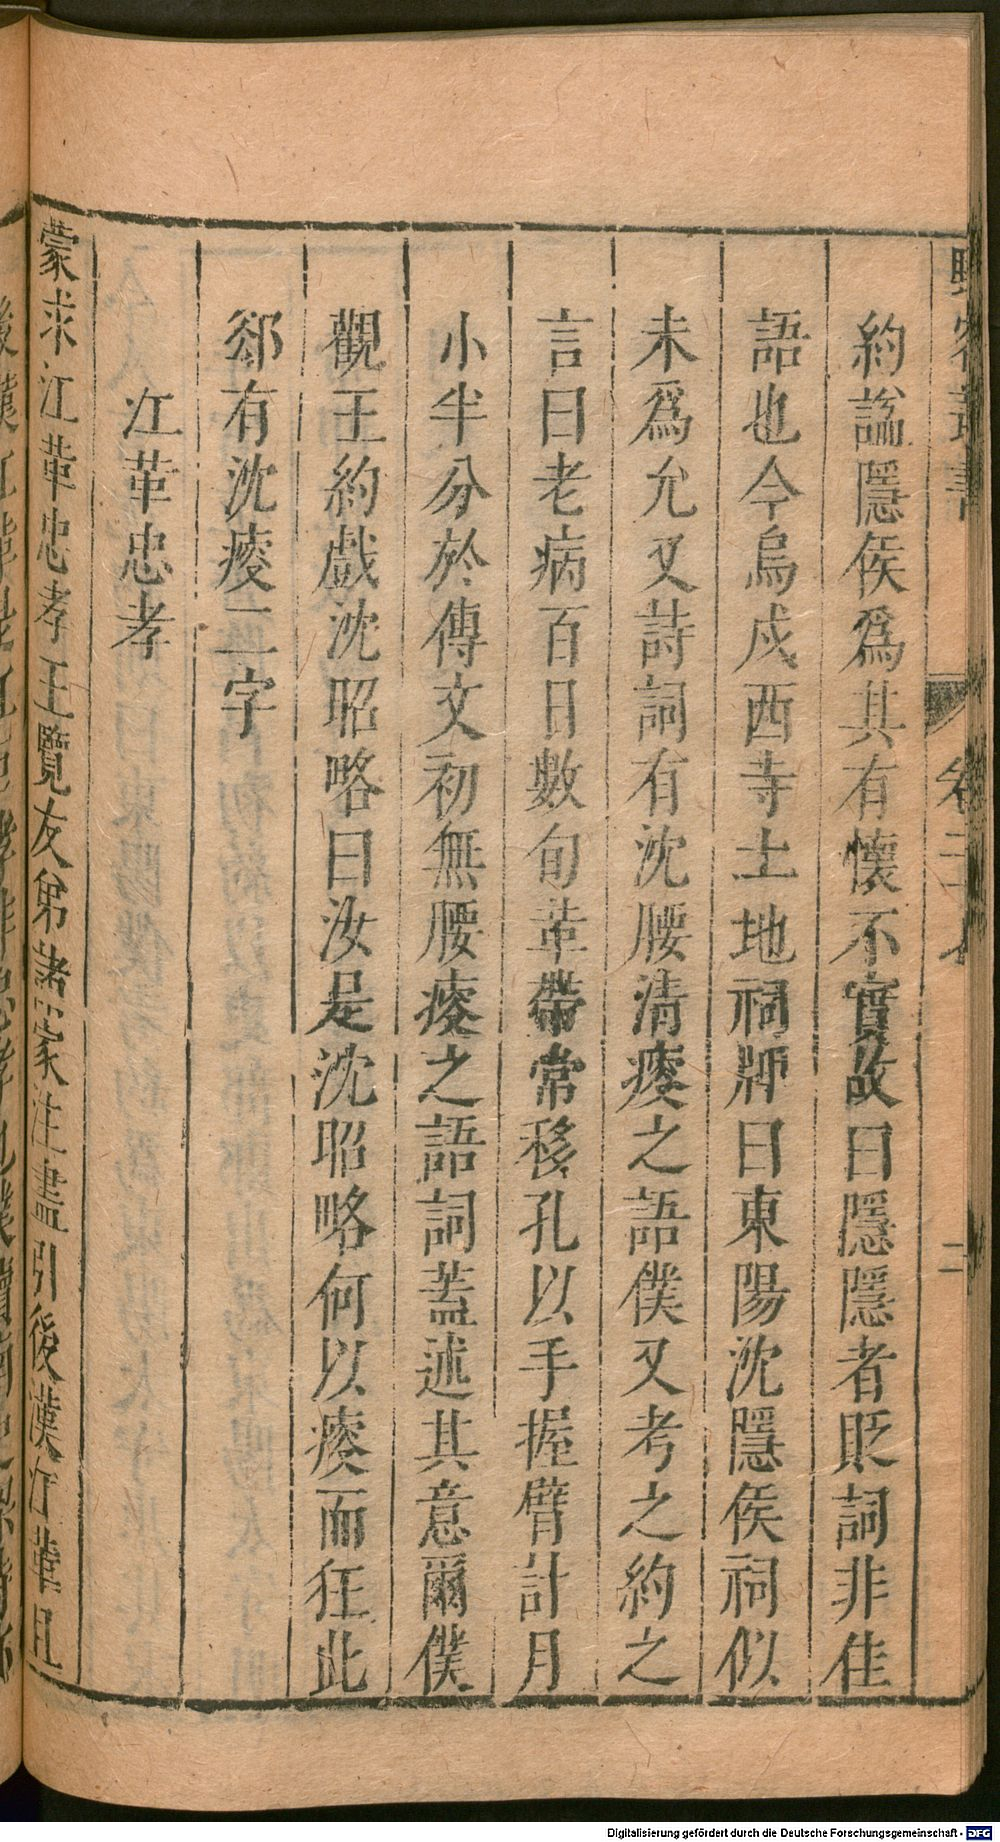 約謚隱侯爲其有懷不實故曰隱隱者貶詞非佳
語也今烏戍西寺土地祠牌曰東陽沈隱侯祠似
未爲允又詩詞有沈腰清瘦之語僕又考之約之
言曰老病百日數旬革帶常移孔以手握臂計月
小半分於傳文初無腰瘦之語詞蓋述其意爾僕
觀王約戲沈昭略曰汝是沈昭略何以瘦而狂此
郤有沈瘦二字
江革忠孝
蒙求江革忠孝王覽友弟諸家注盡引後漢江革且
Digitalisierung gefördert durch die Deutsche Forschungsgemeinschaft - DFG